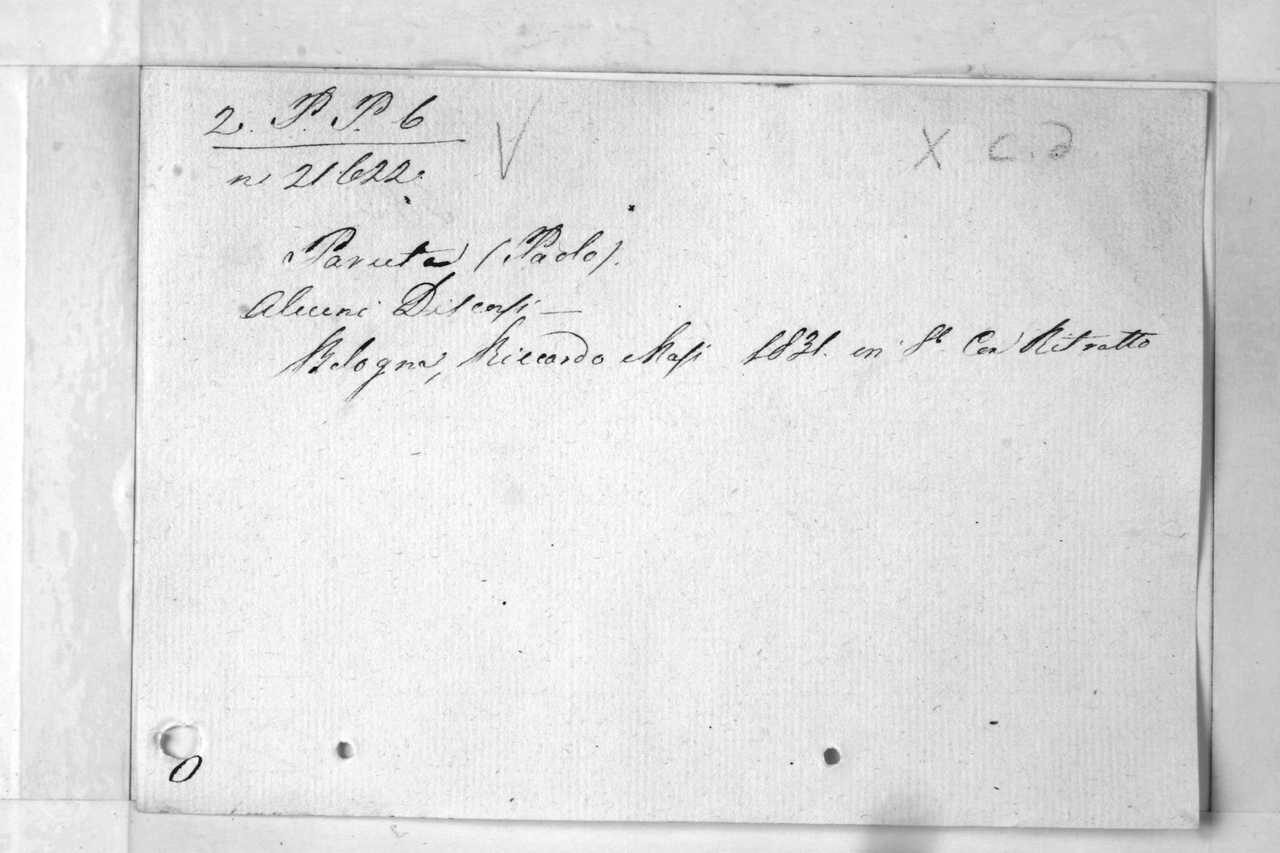 2. P. P. 6
V
X c.d
n. 21622.
Paruta (Paolo).
Alcuni Discorsi —
Bologna, Riccardo Masi 1831. in 8.º Con Ritratto
0